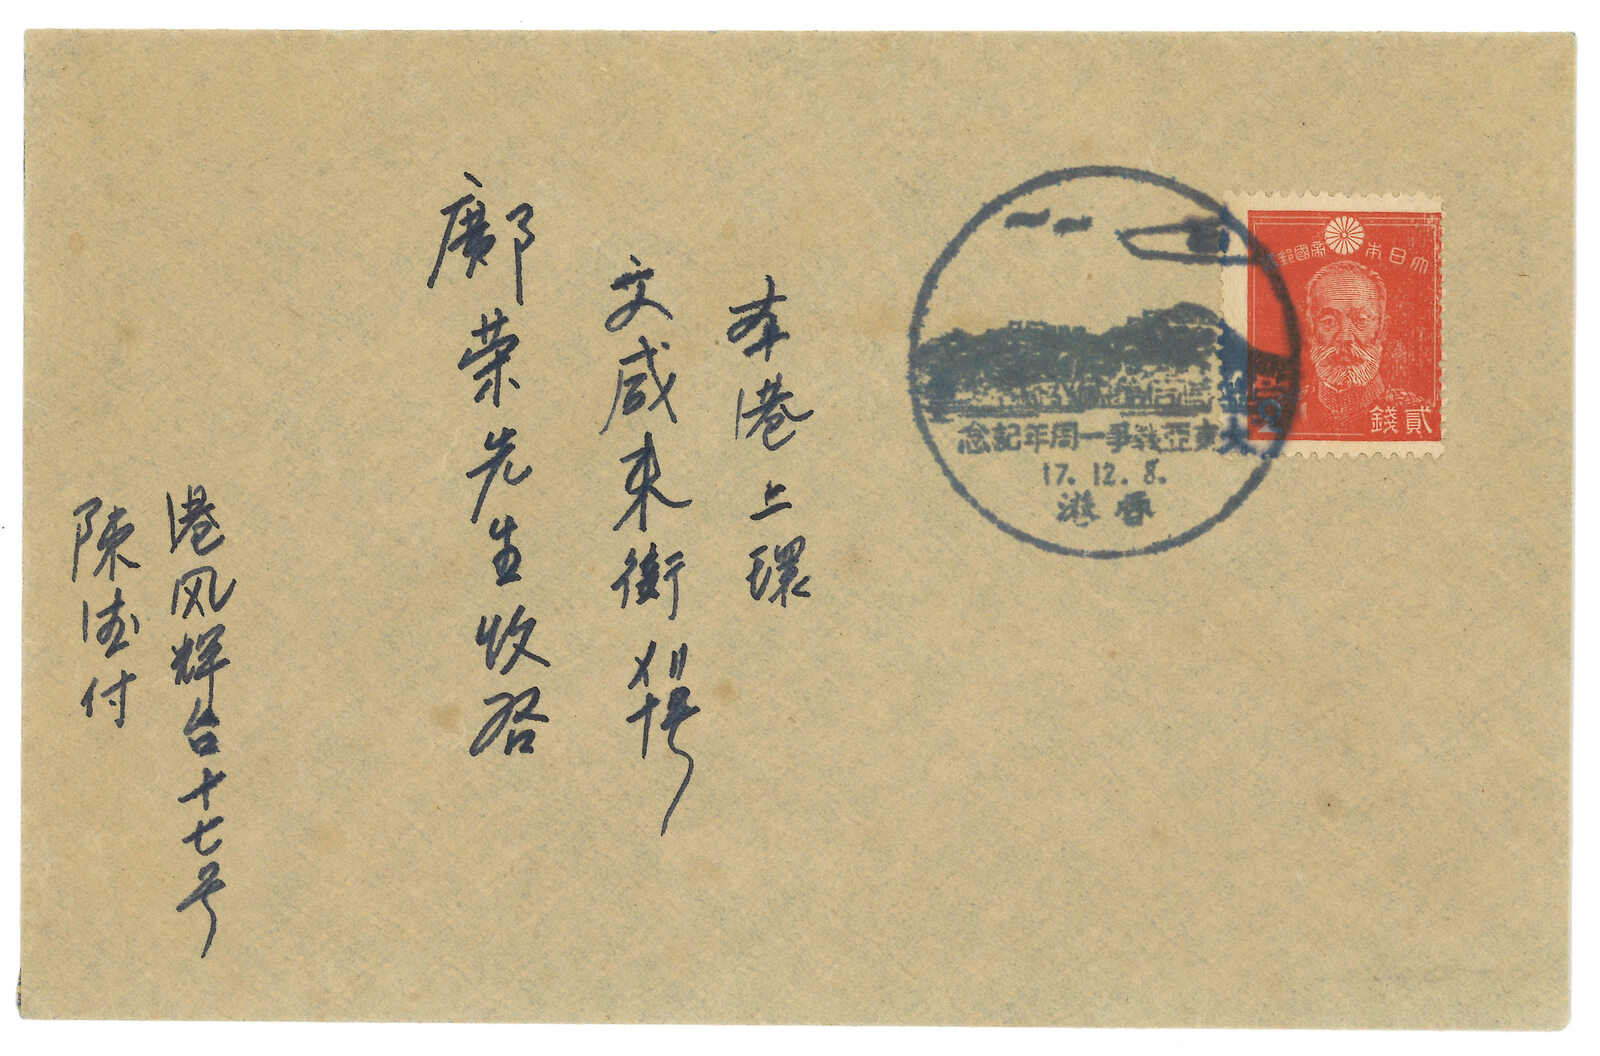 大日本帝國郵
貳錢
2
大東亞戦争一周年記念
17. 12. 8.
香港
本港上環
文咸東街〤〢十号
鄺荣先生收启
港风辉台十七号
陳 付